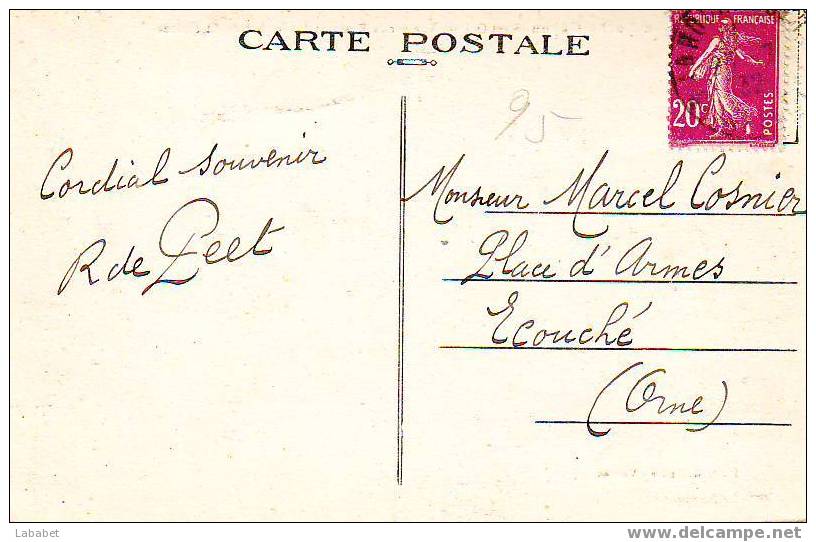 CARTE POSTALE
RÉPUBLIQUE FRANÇAISE
20c
POSTES
95
Cordial souvenir
R de
Monsieur Marcel Cosnier
Place d'Armes
Ecouché
(Orne)
Lababet
delcampe.net